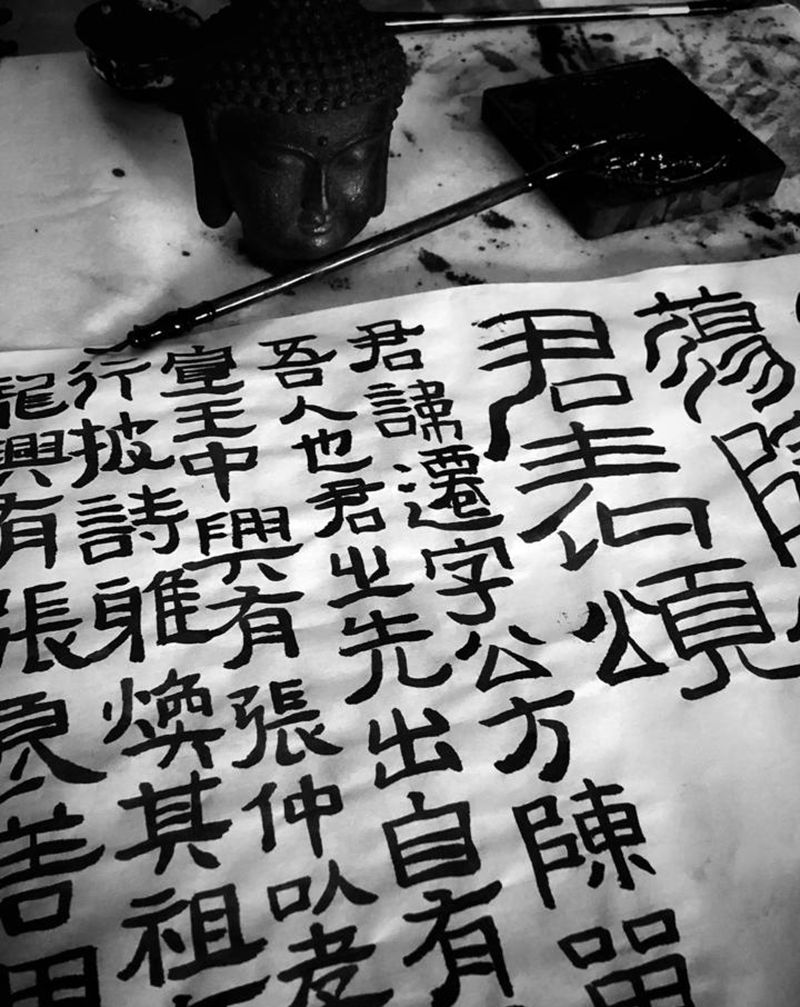 蕩陰
君表頌
君諱遷字公方陳留
吾人也君之先出自有
宣王中興有張仲以孝
行披詩雅煥其祖
龍興有張良善用